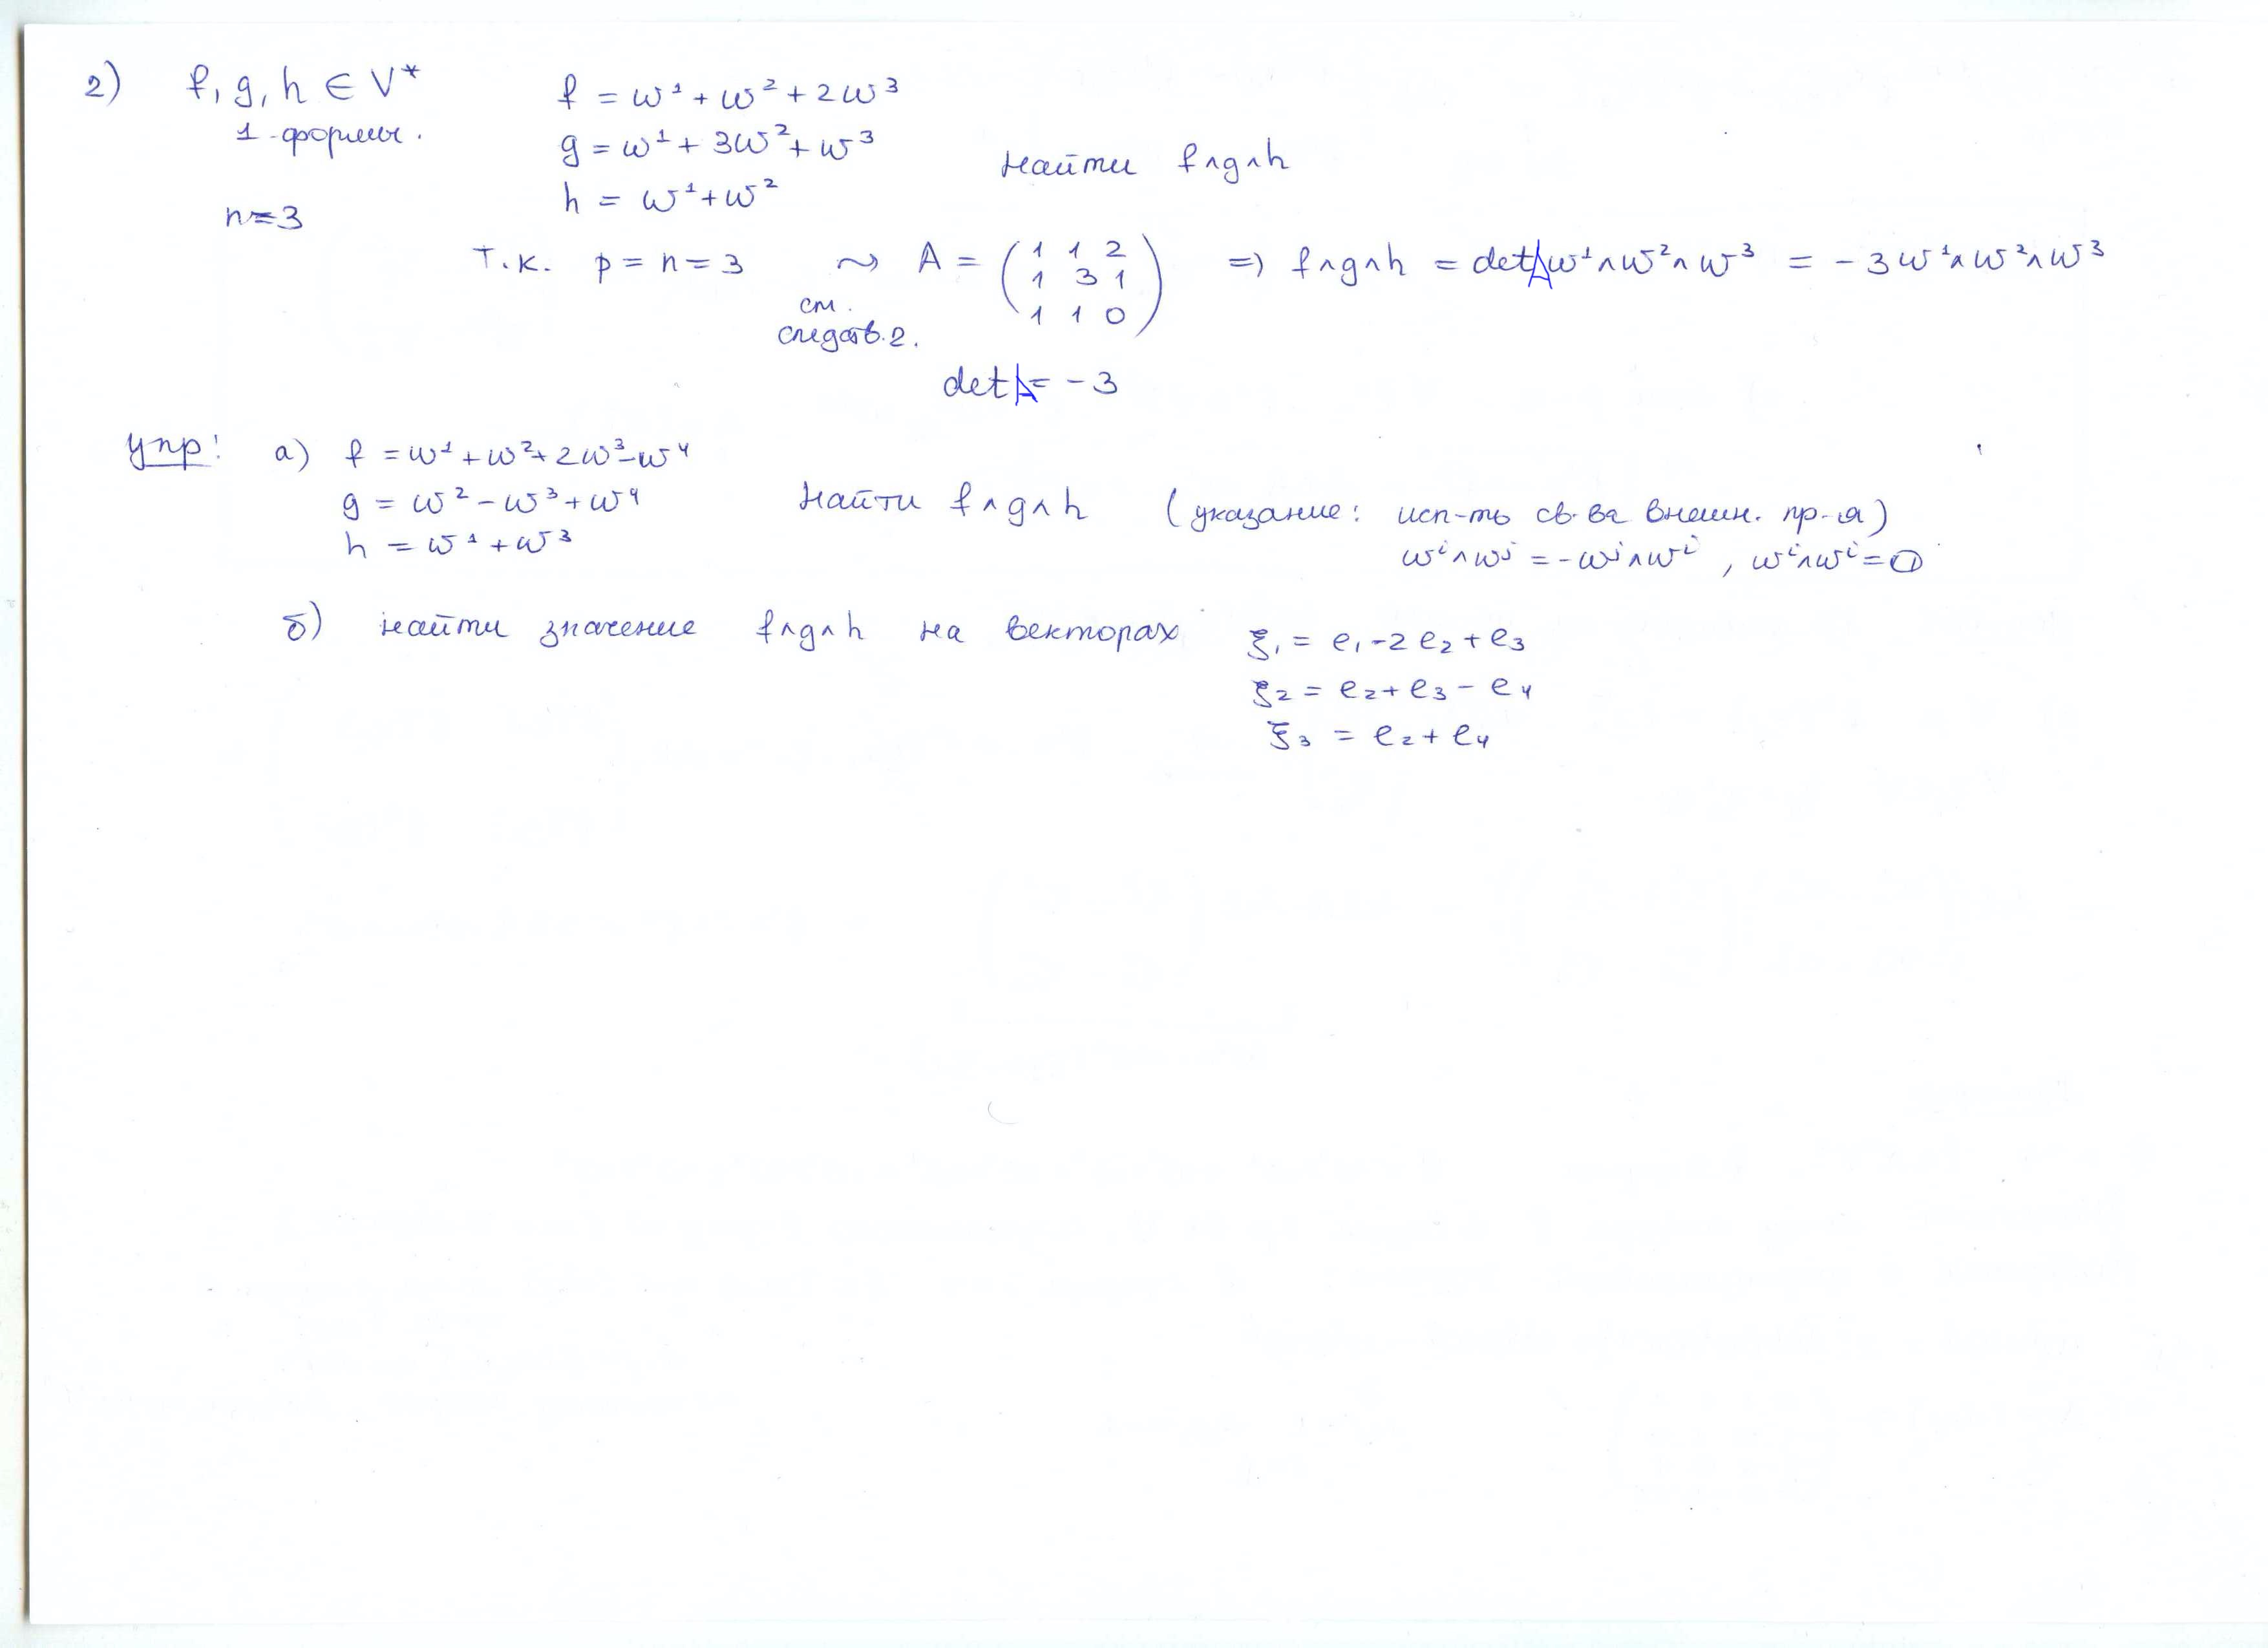 2) f, g, h ∈ V* f = ω¹ + ω² + 2ω³
1-формы. g = ω¹ + 3ω² + ω³ Найти f∧g∧h
n=3 h = ω¹+ω²
Т.к. p = n = 3 ⤳ A = (1 1 2; 1 3 1; 1 1 0) => f∧g∧h = detA ω¹∧ω²∧ω³ = -3ω¹∧ω²∧ω³
см.
следств.2.
detA = -3
Упр: а) f = ω¹+ω²+2ω³-ω⁴
g = ω² - ω³ + ω⁴ Найти f∧g∧h (указание: исп-ть св-ва внешн. пр-я)
h = ω¹ + ω³ ωⁱ∧ωʲ = -ωʲ∧ωⁱ, ωⁱ∧ωⁱ=0
б) найти значение f∧g∧h на векторах ξ₁ = e₁ - 2e₂ + e₃
ξ₂ = e₂ + e₃ - e₄
ξ₃ = e₂ + e₄